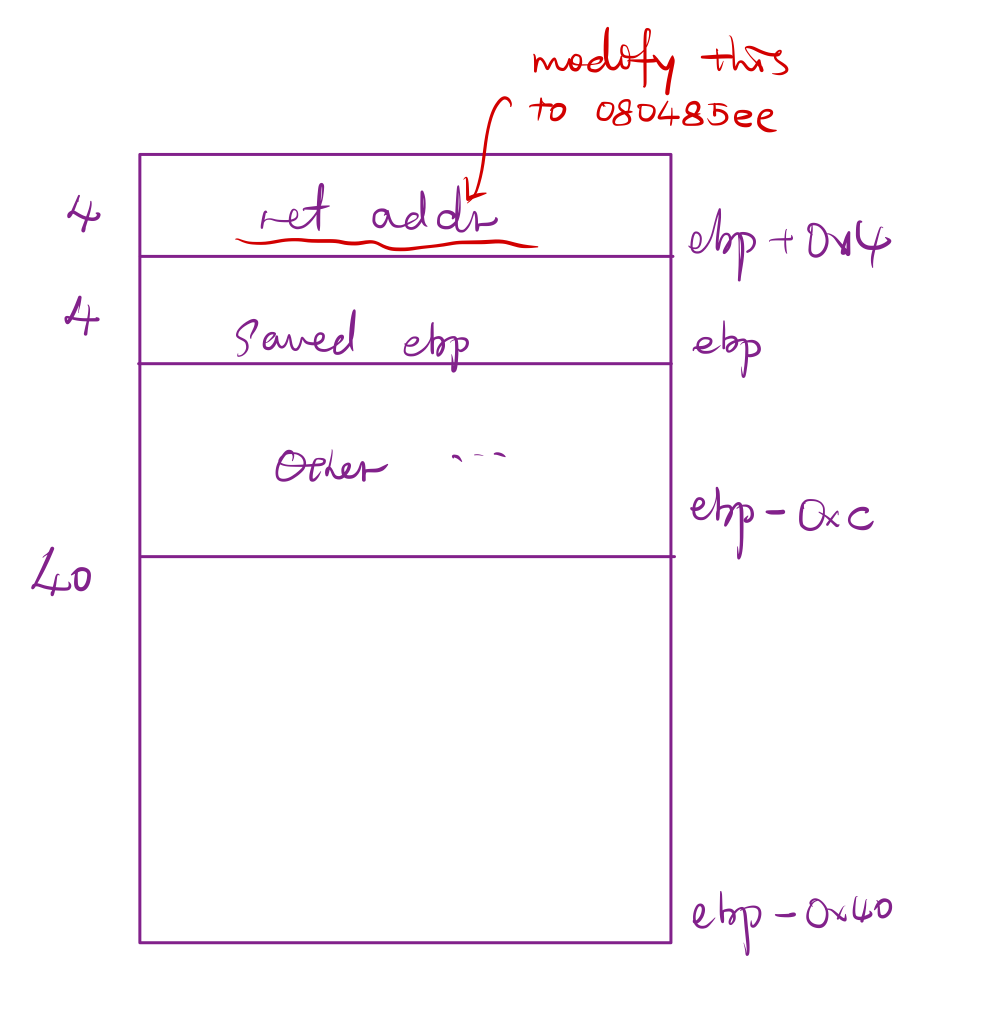 modify this
to 080485ee
4
ret addr
ebp + 0x4
4
Saved ebp
ebp
Other ...
ebp - 0xc
40
ebp - 0x40